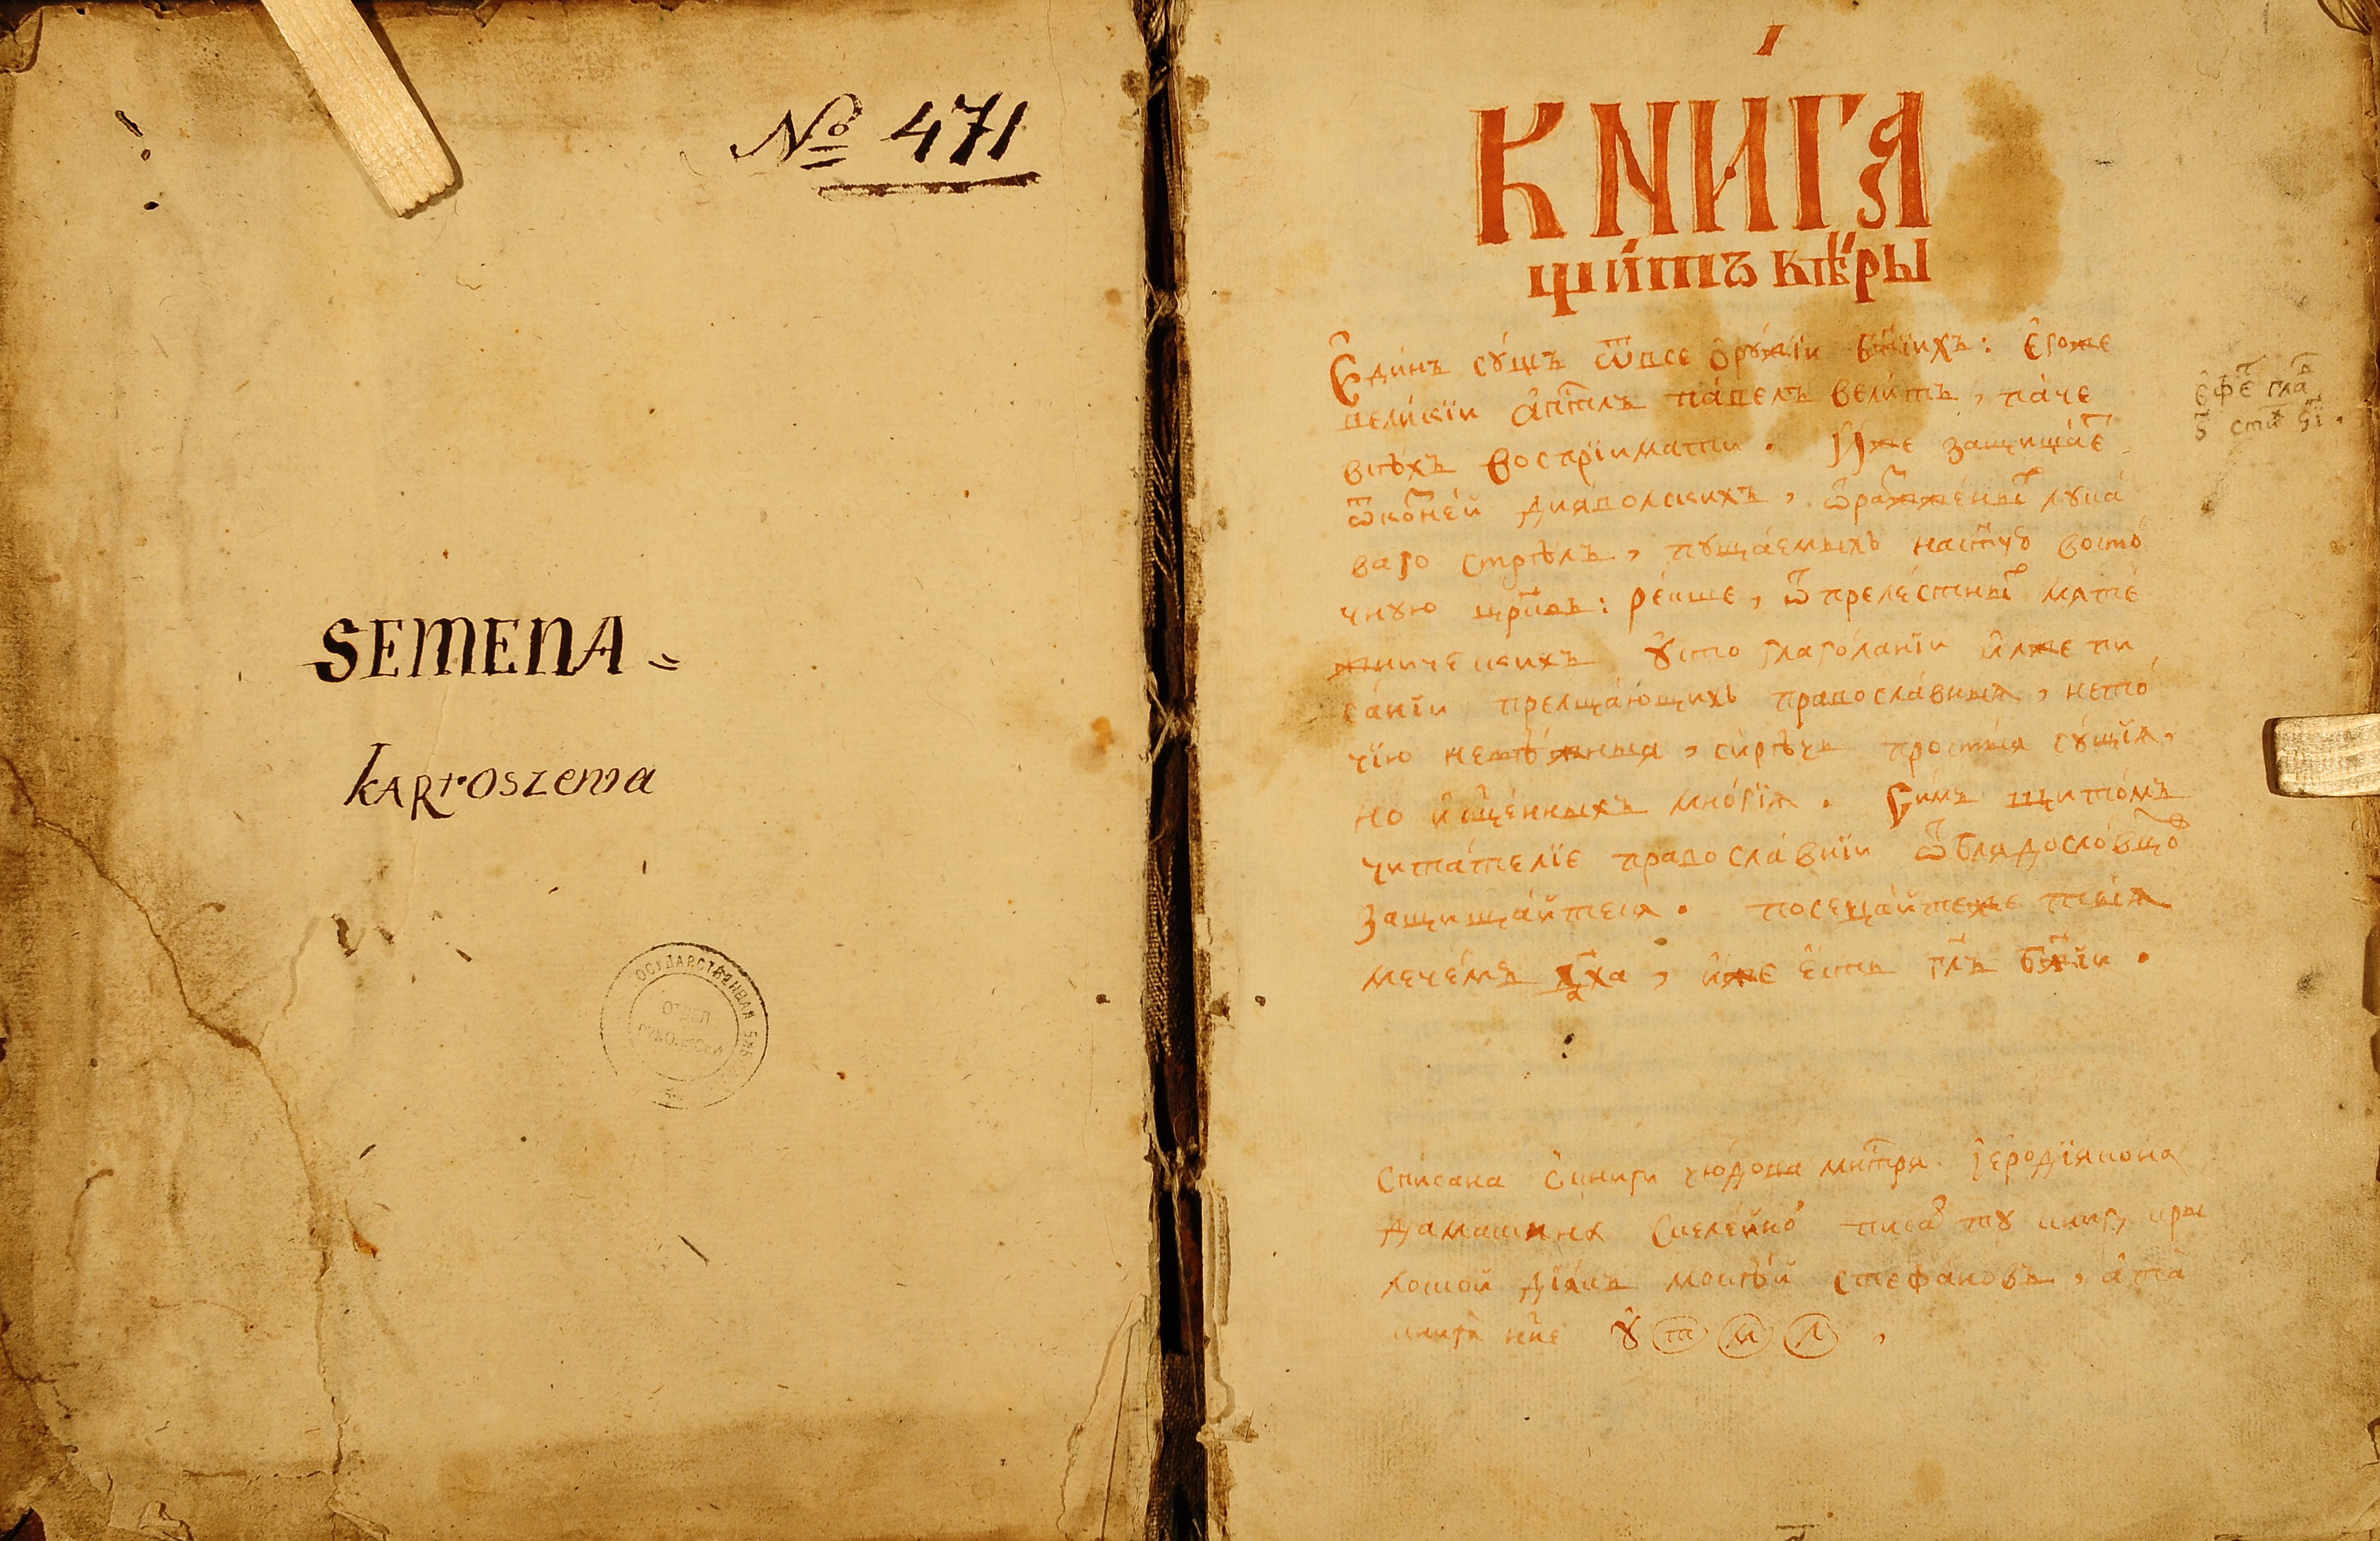 № 471
SEMENA =
kARтOSZEWA
ОСУДАРСТВЕННАЯ БИБ
ОТДЕЛ
РУКОПИСЕЙ
КНИ́ГА
щи́тъ вѣ́ры
Є҆ди́нъ су́щъ ѿ всѣ ѻ҆ру́жїи бж҃їихъ: є҆гоже
вели́кїи а҆пⷭ҇тлъ па́велъ вели́тъ, па́че
всѣхъ воспрїимати. И҆же защища́єⷮ
ѿ ко́зней дия́волскихъ, ѿ раⷤже́ныⷯ лука́
ваго стрѣлъ, пуща́емыхъ на ст҃ую восто́
чную цр҃ковь: ре́кше, ѿ преле́стныⷯ мяте́
жническихъ ᲂу҆сто глаго́ланїи и҆лже пи
са́нїи прелща́ющихъ правосла́вныя, не то́
чїю невѣ́жныя, си́рѣчь просты́я су́щїя,
но и҆ ᲂу҆че́нныхъ мно́гїя. Си́мъ щито́мъ
чита́телїе правосла́внїи ѿ блядосло́вцоⷡ
защища́йтеся. посеца́йтеже тѣ́хъ
мече́мъ дх҃а, и҆́же є҆́сть гл҃ъ бж҃їи.
є҆феⷭ҇ глаⷡ҇
ѕ҃ стиⷯ ѕ҃і.
Списана с кни́ги чю́дова мнⷭ҇тря. і҆еродїякона
дамаскина с келе́йноⷡ писаⷧ ту книг, кры
лошой дїя́къ моисѣ́й стефа́новъ, а҆ та́
книга нн҃е ᲂу҆ т м л,